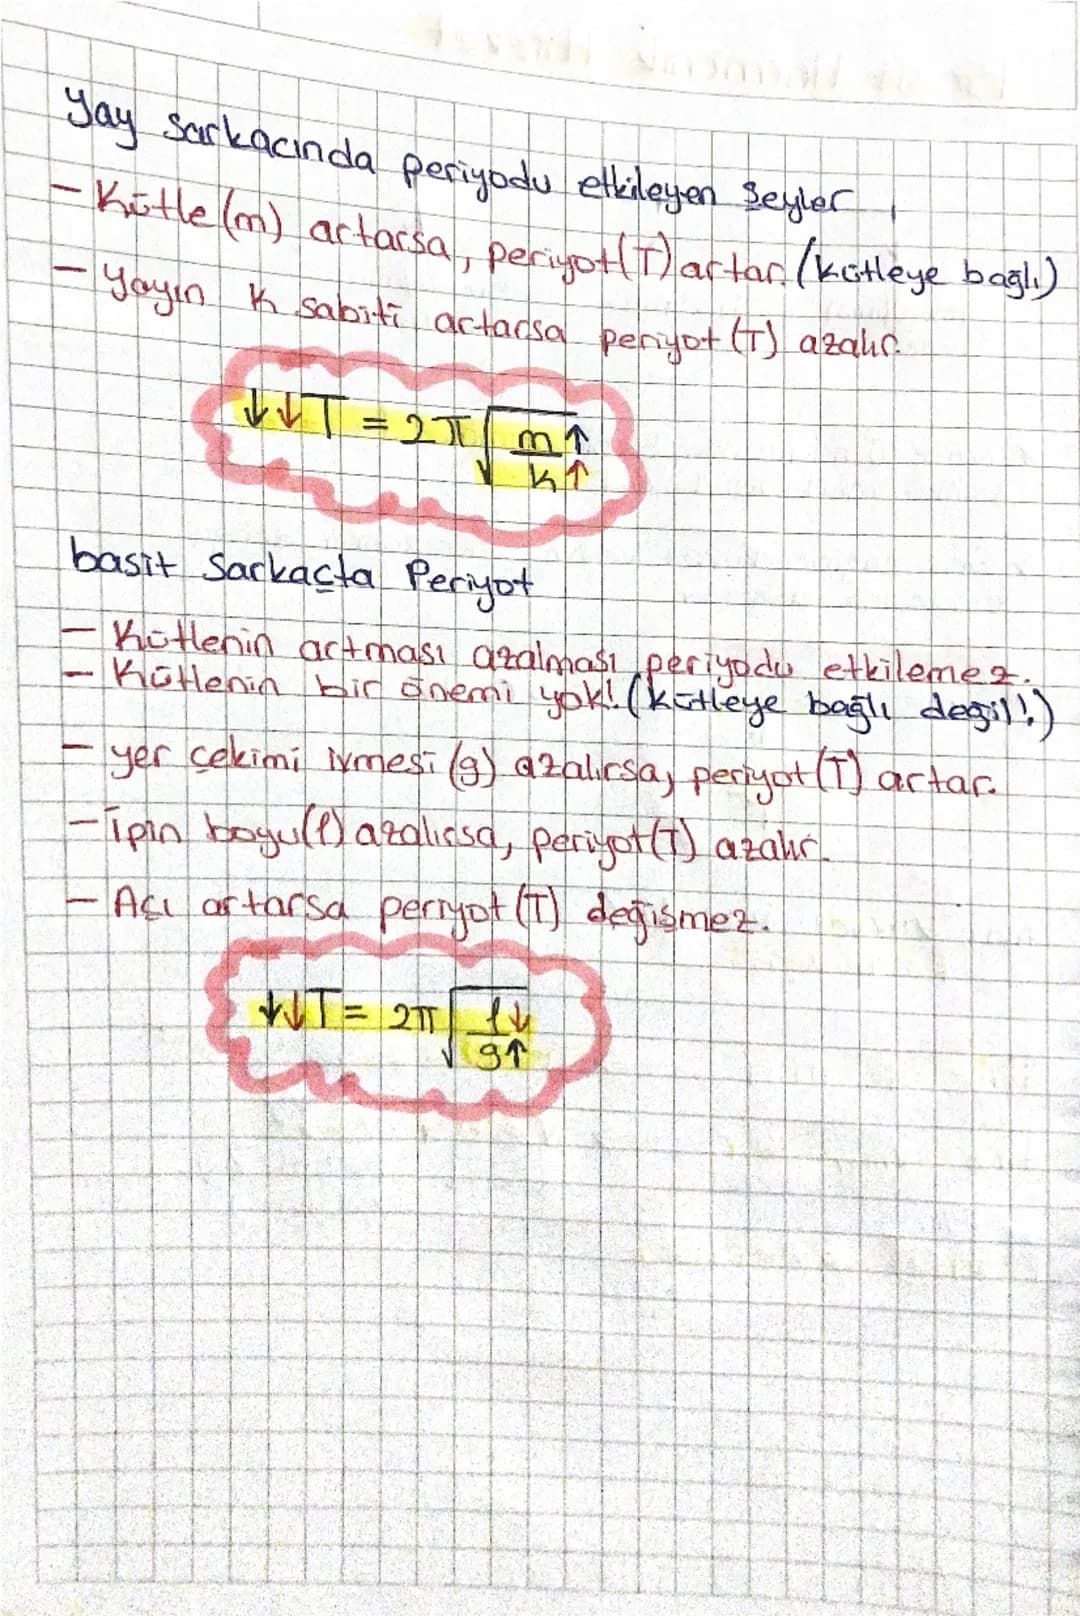 Yay sarkacında periyodu etkileyen şeyler
- Kütle (m) artarsa, periyot (T) artar. (kütleye bağlı)
- Yayın k sabiti artarsa periyot (T) azalır.
↓↓T = 2π√(m↑/k↑)
basit Sarkaçta Periyot
- Kütlenin artması azalması periyodu etkilemez.
- Kütlenin bir önemi yok! (kütleye bağlı değil!)
- yer çekimi ivmesi (g) azalırsa, periyot (T) artar.
- İpin boyu (l) azalırsa, periyot (T) azalır.
- Açı artarsa periyot (T) değişmez.
↓↓T = 2π√(l↓/g↑)